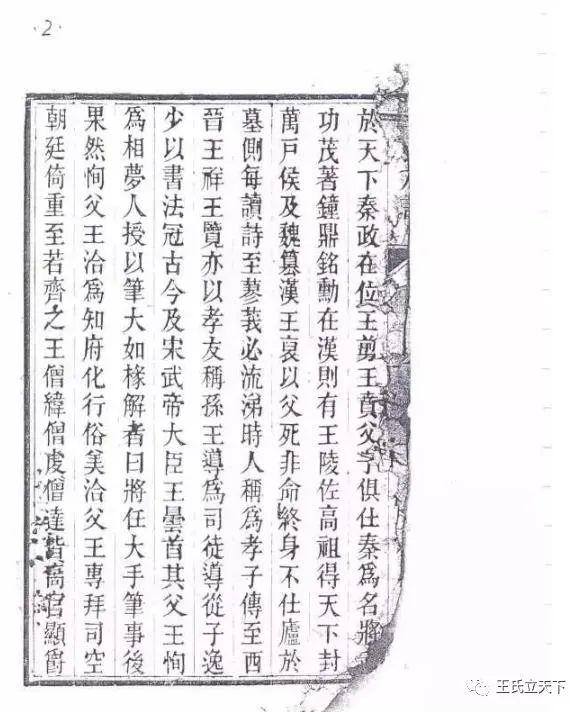 2
於天下秦政在位王剪王賁父子俱仕秦為名將
功茂著鐘鼎銘勳在漢則有王陵佐高祖得天下封
萬戶侯及魏篡漢王裒以父死非命終身不仕廬於
墓側每讀詩至蓼莪必流涕時人稱為孝子傳至西
晉王祥王覽亦以孝友稱孫王導為司徒導從子逸
少以書法冠古今及宋武帝大臣王曇首其父王恂
為相夢人授以筆大如椽解者曰將任大手筆事後
果然恂父王洽為知府化行俗美洽父王專拜司空
朝廷倚重至若齊之王僧緯僧虔僧達皆高官顯爵
王氏立天下